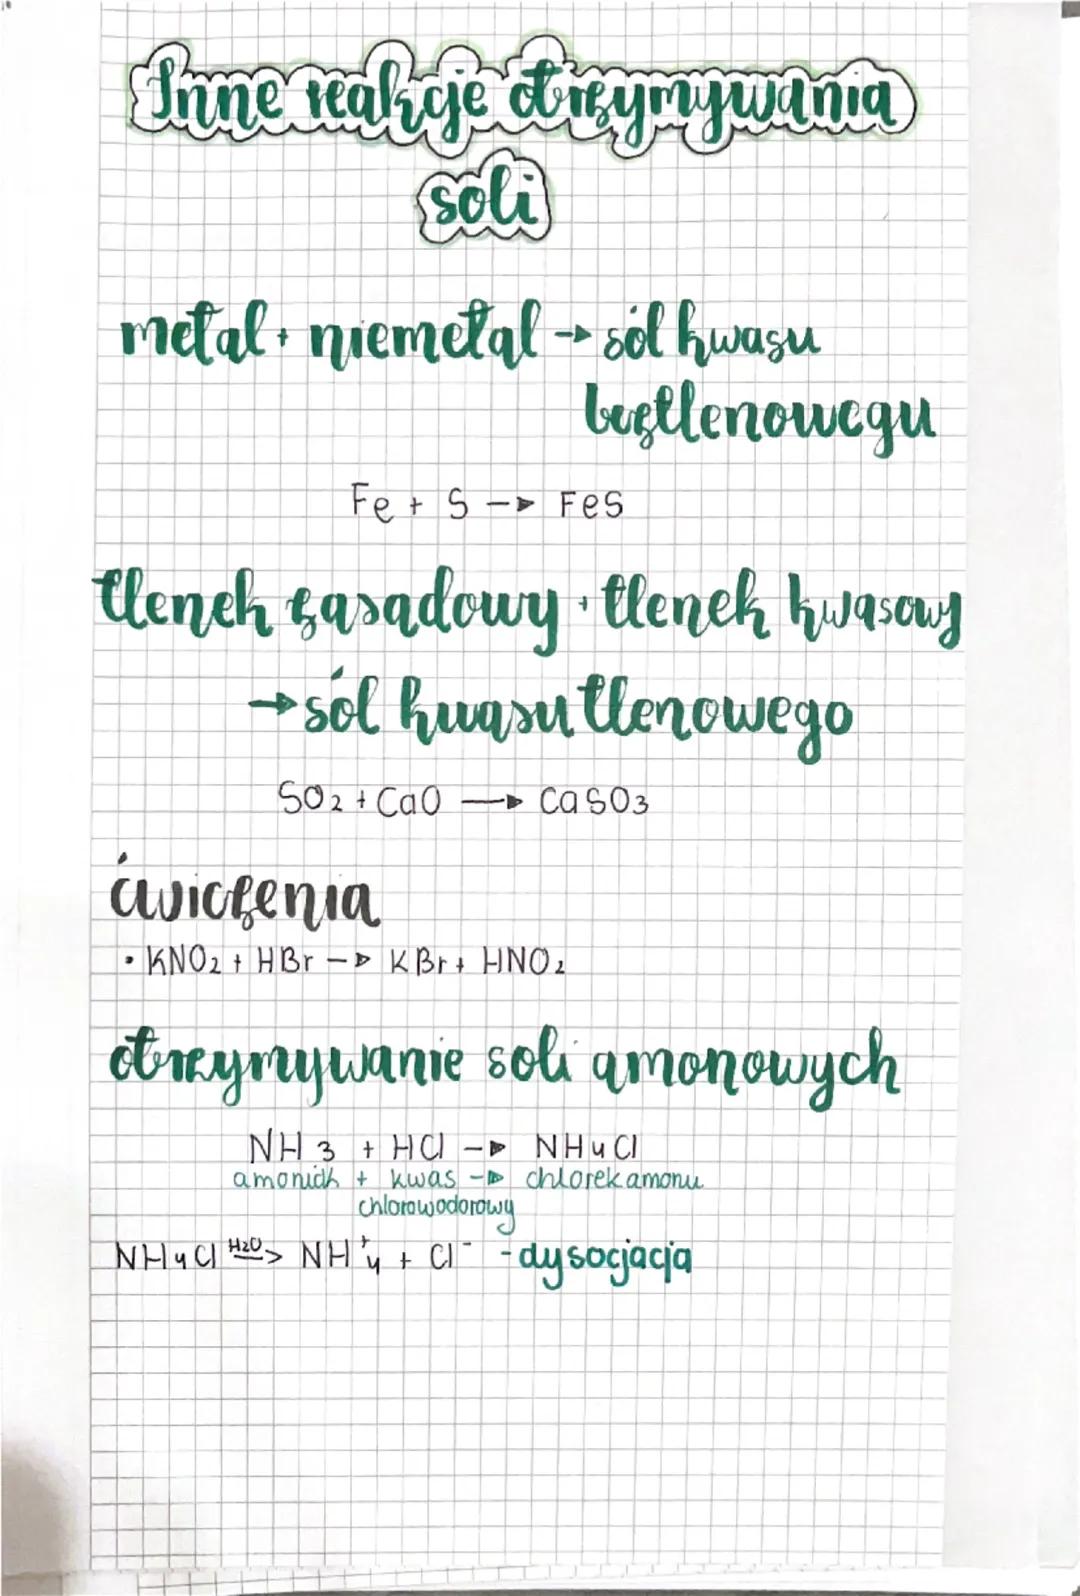 Inne reakcje otrzymywania
soli
metal + niemetal → sól kwasu
beztlenowegu
Fe + S → FeS
tlenek zasadowy + tlenek kwasowy
→ sól kwasu tlenowego
SO₂ + CaO → CaSO₃
ćwiczenia
• KNO₂ + HBr → KBr + HNO₂
otrzymywanie soli amonowych
NH₃ + HCl → NH₄Cl
amoniak + kwas → chlorek amonu
chlorowodorowy
NH₄Cl H₂O> NH₄⁺ + Cl⁻ - dysocjacja